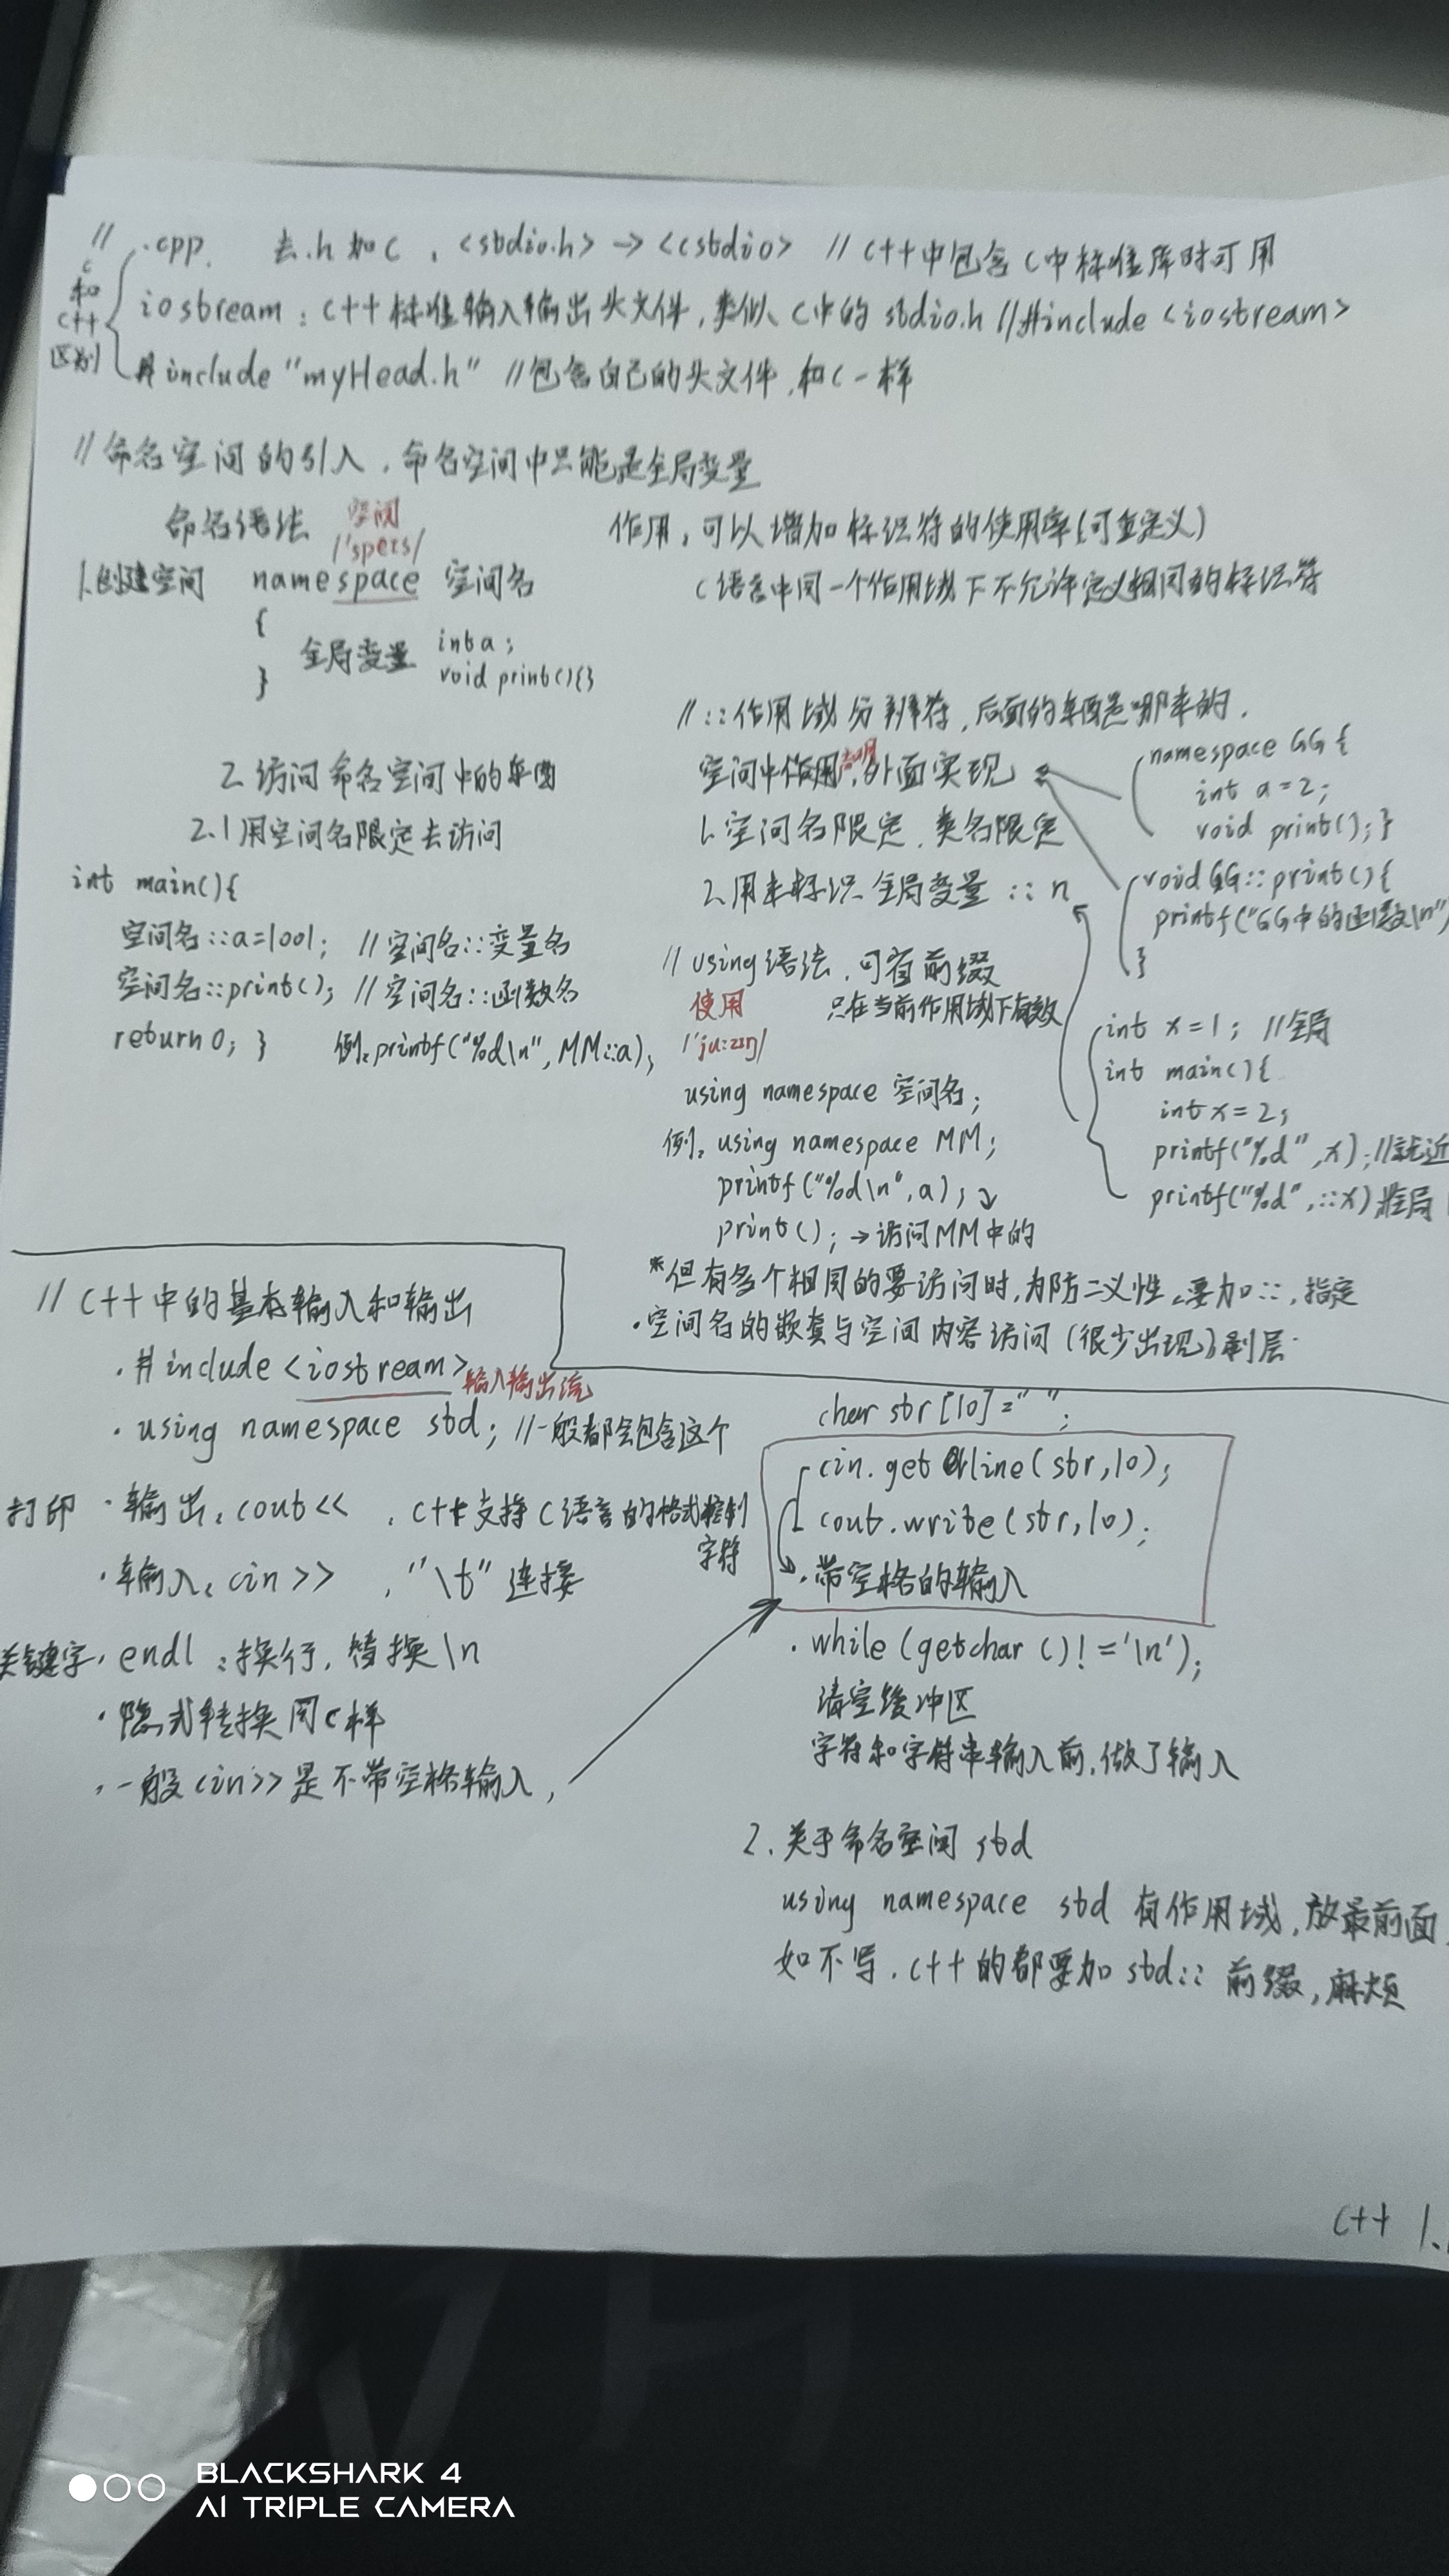 // .cpp. 去.h加c, <stdio.h> → <cstdio> // C++中包含C中标准库时可用
c和c++区别
iostream：C++标准输入输出头文件，类似C中的stdio.h //#include <iostream>
#include "myHead.h" //包含自己的头文件，和C一样
//命名空间的引入，命名空间中只能是全局变量
命名语法 空间 /'speɪs/
1.创建空间 namespace 空间名
{
全局变量 int a;
void print(){}
}
作用，可以增加标识符的使用率(可重定义)
C语言中同一个作用域下不允许定义相同的标识符
2.访问命名空间中的东西
2.1用空间名限定去访问
int main(){
空间名::a=1001; //空间名::变量名
空间名::print(); //空间名::函数名
return 0; } 例：printf("%d\n", MM::a);
//::作用域分辨符，后面的东西是哪来的.
空间中声明，外面实现
1.空间名限定，类名限定
2.用来标识全局变量 ::n
namespace GG {
int a=2;
void print();}
void GG::print(){
printf("GG中的函数\n")
}
// using语法，可省前缀
使用 只在当前作用域下有效
/'ju:zɪŋ/
using namespace 空间名;
例：using namespace MM;
printf("%d\n",a);
print(); →访问MM中的
int x=1; //全局
int main(){
int x=2;
printf("%d",x);//就近
printf("%d",::x)
*但有多个相同的要访问时，为防二义性，要加::，指定
·空间名的嵌套与空间内容访问(很少出现)剥层
// C++中的基本输入和输出
·#include <iostream> 输入输出流
·using namespace std; //一般都会包含这个
打印 ·输出：cout<< ，C++支持C语言的格式控制字符
·输入：cin>> ，"\t"连接
关键字·endl：换行，替换\n
·隐式转换同C样
·一般cin>>是不带空格输入，
char str[10]=" ";
cin.getline(str,10);
cout.write(str,10);
·带空格的输入
·while(getchar()!='\n');
清空缓冲区
字符和字符串输入前，做了输入
2.关于命名空间 std
using namespace std 有作用域，放最前面，
如不写，C++的都要加std::前缀，麻烦
C++ 1.
BLACKSHARK 4
AI TRIPLE CAMERA